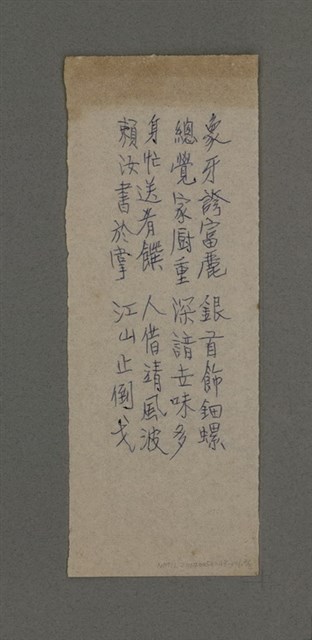 象牙誇富麗 銀首飾鈿螺
總覺家厨重 深諳去味多
身忙送肴饌 人借靖風波
賴汝書於掌 江山止倒戈